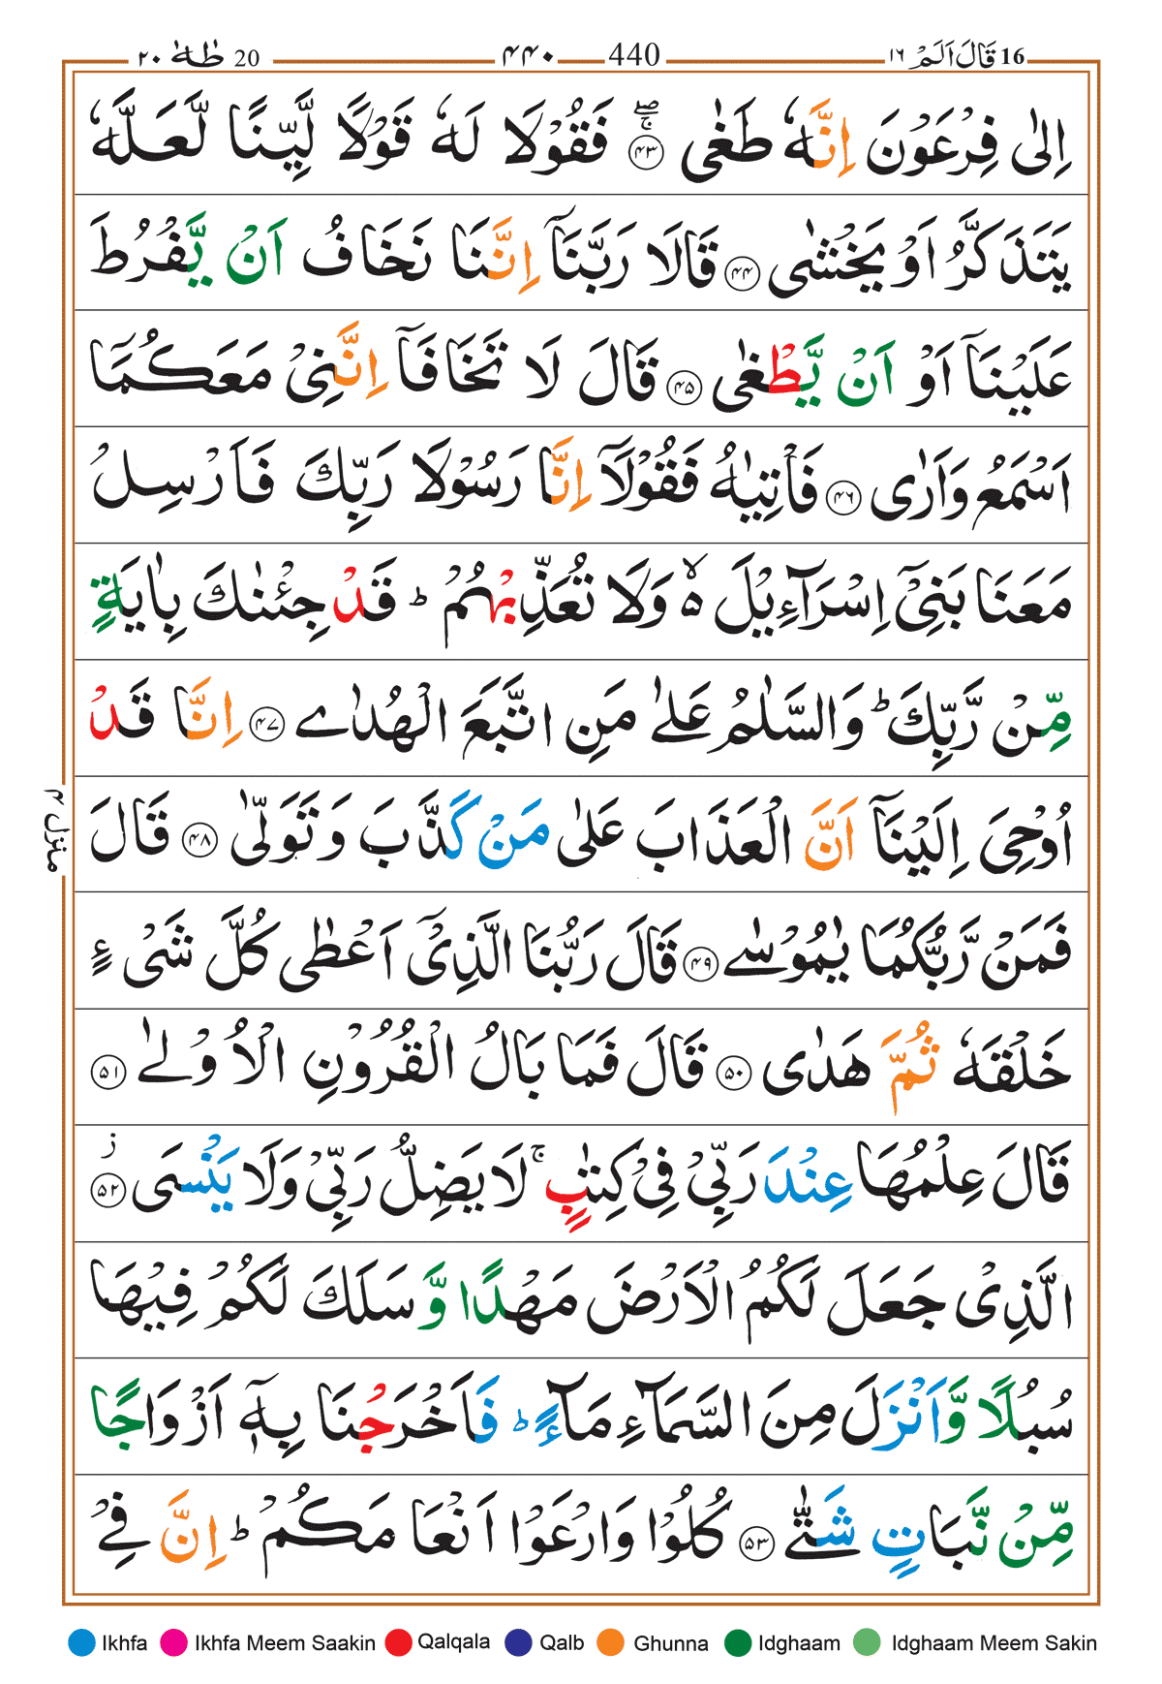 16 قَالَ اَلَمْ ١٦ 440 ۴۴۰ 20 طٰهٰ ٢٠
اِلٰى فِرْعَوْنَ اِنَّهٗ طَغٰى ۚۖ‏﴿۴۳﴾ فَقُوْلَا لَهٗ قَوْلًا لَّيِّنًا لَّعَلَّهٗ
يَتَذَكَّرُ اَوْ يَخْشٰى ﴿۴۴﴾ قَالَا رَبَّنَاۤ اِنَّنَا نَخَافُ اَنْ يَّفْرُطَ
عَلَيْنَاۤ اَوْ اَنْ يَّطْغٰى ﴿۴۵﴾ قَالَ لَا تَخَافَاۤ اِنَّنِىْ مَعَكُمَاۤ
اَسْمَعُ وَاَرٰى ﴿۴۶﴾ فَاْتِيٰهُ فَقُوْلَاۤ اِنَّا رَسُوْلَا رَبِّكَ فَاَرْسِلْ
مَعَنَا بَنِىْۤ اِسْرَآءِيْلَ ۙ۬ وَلَا تُعَذِّبْهُمْ ؕ قَدْ جِئْنٰكَ بِاٰيَةٍ
مِّنْ رَّبِّكَ ؕ وَالسَّلٰمُ عَلٰى مَنِ اتَّبَعَ الْهُدٰى ﴿۴۷﴾ اِنَّا قَدْ
اُوْحِىَ اِلَيْنَاۤ اَنَّ الْعَذَابَ عَلٰى مَنْ كَذَّبَ وَتَوَلّٰى ﴿۴۸﴾ قَالَ
فَمَنْ رَّبُّكُمَا يٰمُوْسٰى ﴿۴۹﴾ قَالَ رَبُّنَا الَّذِىْۤ اَعْطٰى كُلَّ شَىْءٍ
خَلْقَهٗ ثُمَّ هَدٰى ﴿۵۰﴾ قَالَ فَمَا بَالُ الْقُرُوْنِ الْاُوْلٰى ﴿۵۱﴾
قَالَ عِلْمُهَا عِنْدَ رَبِّىْ فِىْ كِتٰبٍ ۚ لَا يَضِلُّ رَبِّىْ وَلَا يَنْسَى ز ﴿۵۲﴾
الَّذِىْ جَعَلَ لَكُمُ الْاَرْضَ مَهْدًا وَّسَلَكَ لَكُمْ فِيْهَا
سُبُلًا وَّاَنْزَلَ مِنَ السَّمَآءِ مَآءً ؕ فَاَخْرَجْنَا بِهٖۤ اَزْوَاجًا
مِّنْ نَّبَاتٍ شَتّٰى ﴿۵۳﴾ كُلُوْا وَارْعَوْا اَنْعَامَكُمْ ؕ اِنَّ فِىْ
منزل ۴
Ikhfa Ikhfa Meem Saakin Qalqala Qalb Ghunna Idghaam Idghaam Meem Sakin